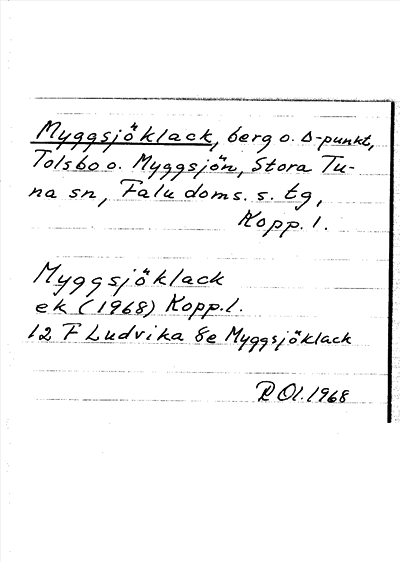 Myggsjöklack, berg o. Δ-punkt,
Tolsbo o. Myggsjön, Stora Tu-
na sn, Falu doms. s. tg,
Kopp. l.
Myggsjöklack
ek (1968) Kopp. l.
12 F Ludvika 8e Myggsjöklack
R Ol. 1968